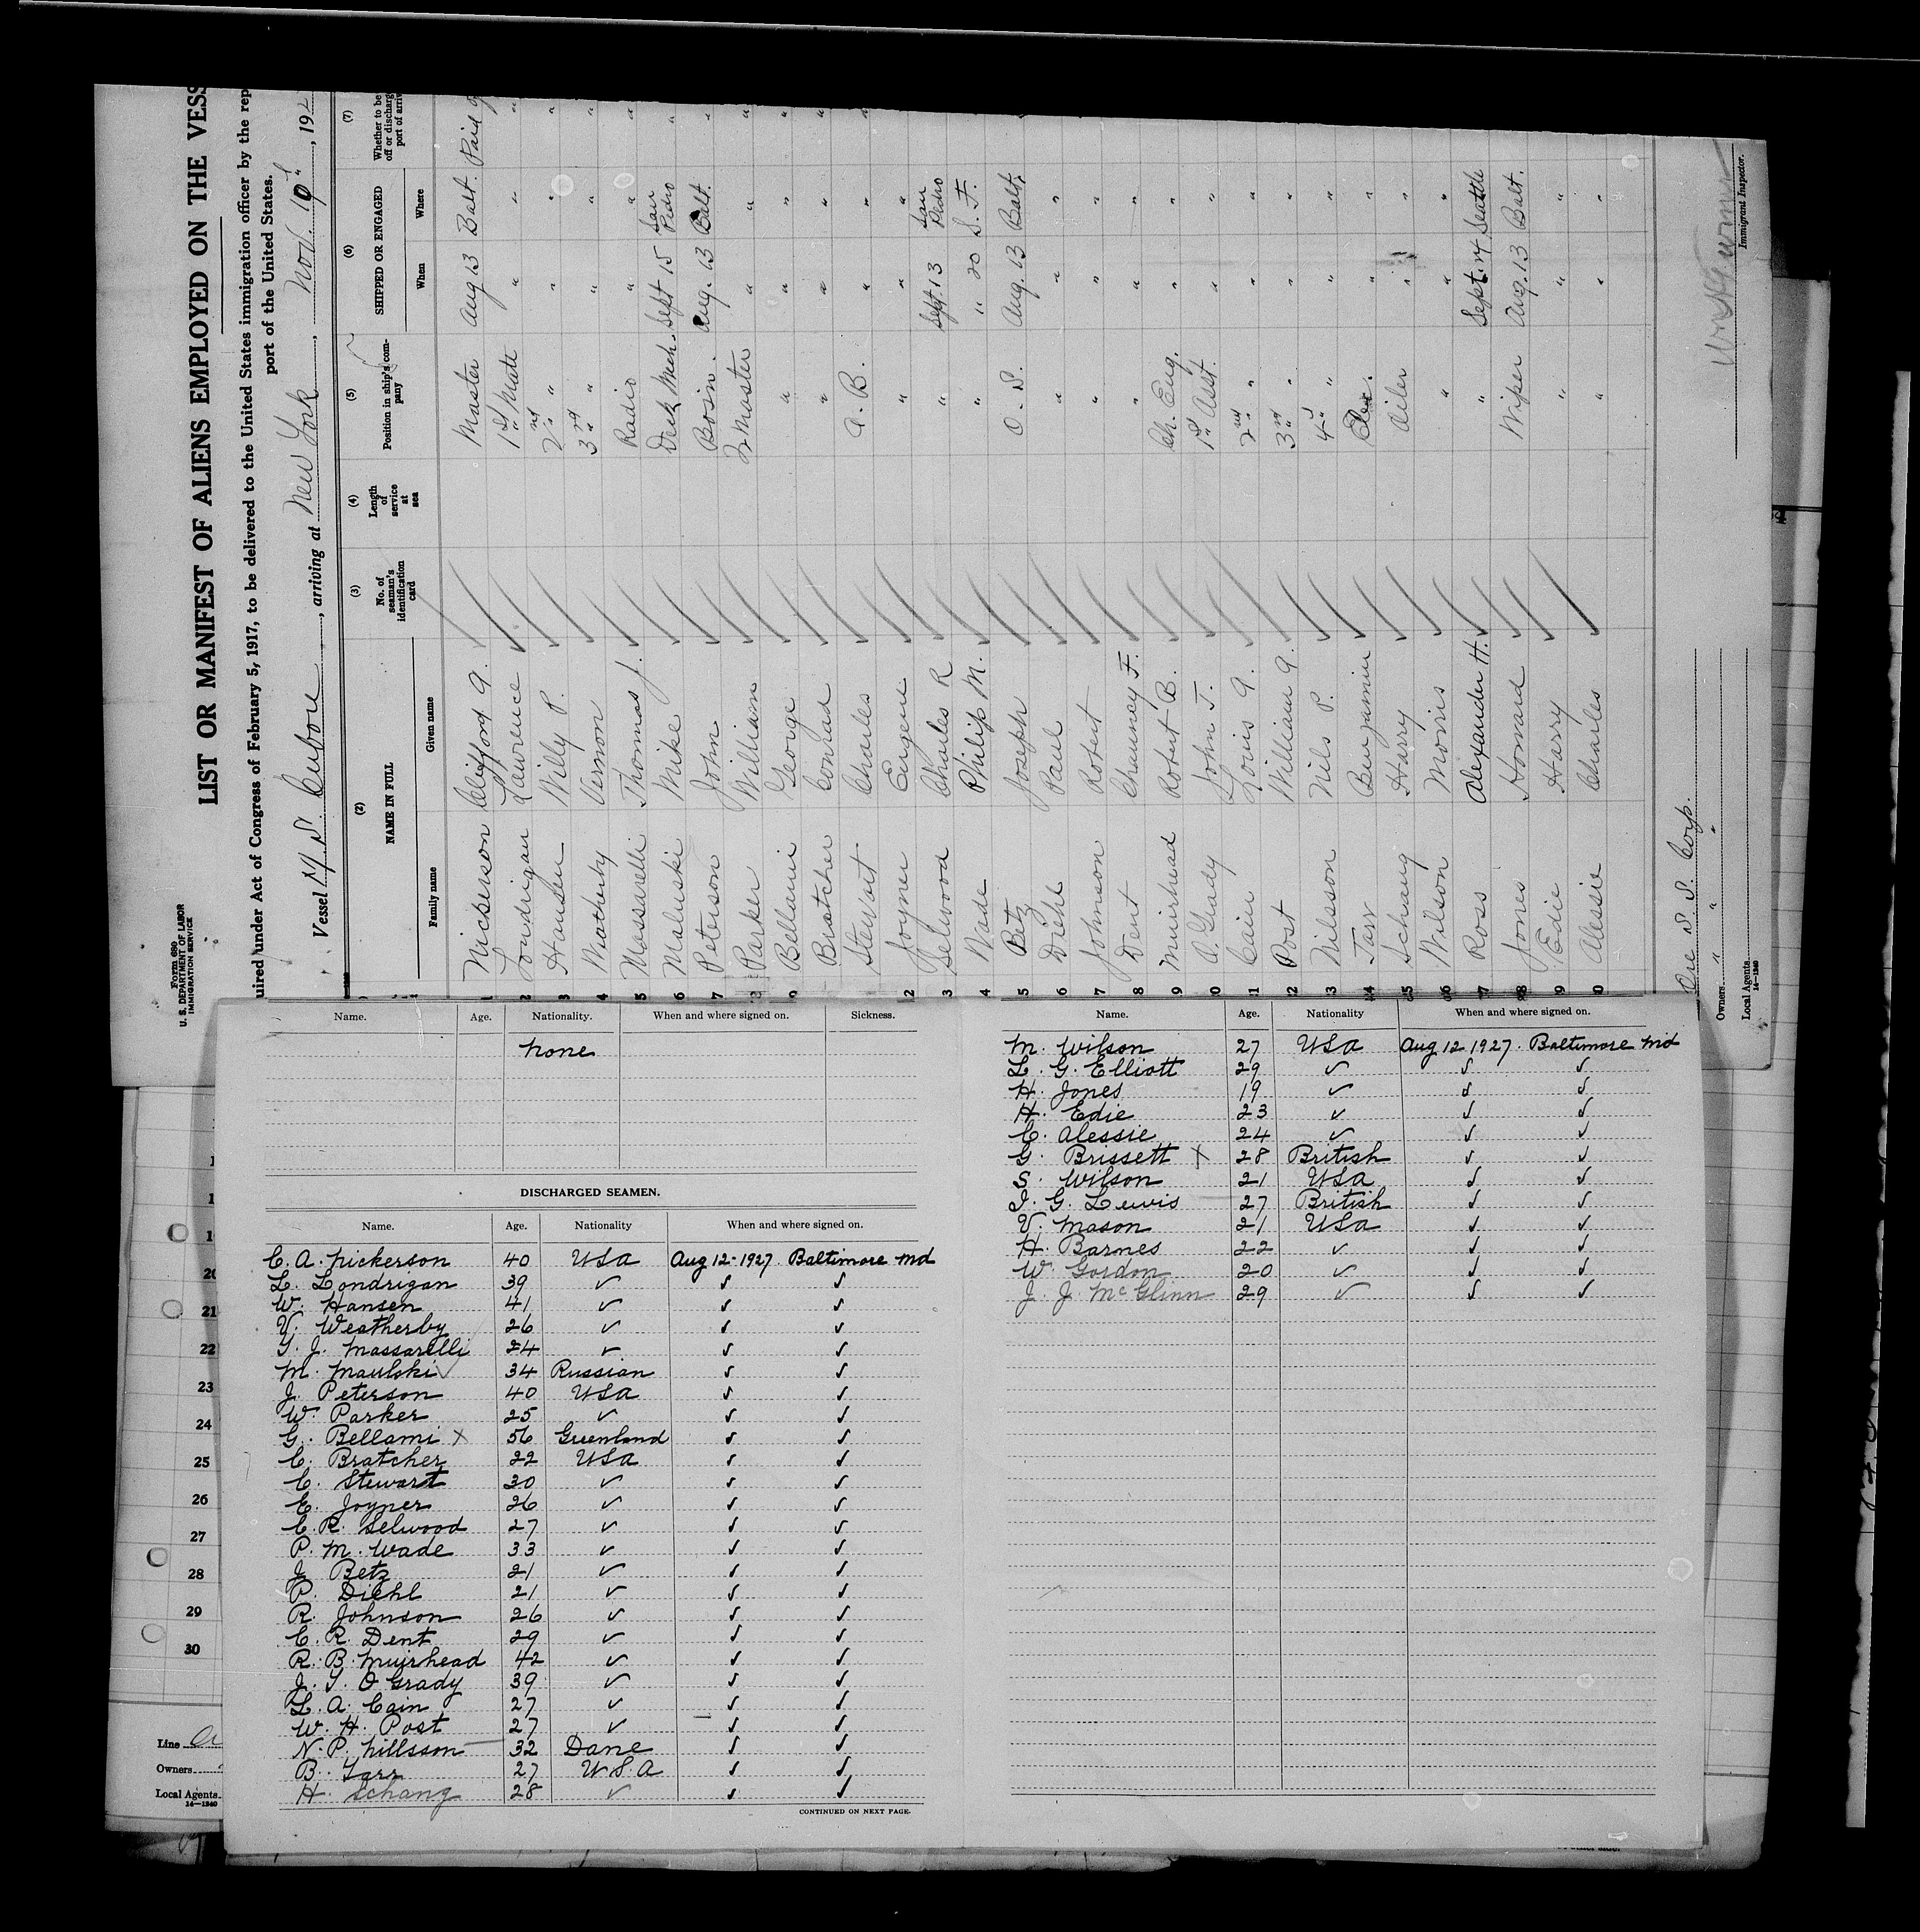 Form 680
U. S. DEPARTMENT OF LABOR
IMMIGRATION SERVICE
LIST OR MANIFEST OF ALIENS EMPLOYED ON THE VESS
uired under Act of Congress of February 5, 1917, to be delivered to the United States immigration officer by the rep
port of the United States.
Vessel M.S. Cubore, arriving at New York, Nov. 19, 192
(2) (3) (4) (5) (6) (7)
NAME IN FULL No. of seaman's identification card Length of service at sea Position in ship's company SHIPPED OR ENGAGED Whether to be off or discharg port of arriv
Family name Given name When Where
1 Nickerson Clifford A. Master Aug 13 Balt. Paid
2 Londrigan Lawrence 1st Mate " " "
3 Hansen Willy P. 2nd " " " "
4 Weatherby Vernon 3rd " " " "
5 Massarelli Thomas J. Radio " " "
6 Maluski Mike Deck Mch. Sept 15 San Pedro "
7 Peterson John Bosin. Aug. 13 Balt. "
8 Parker William Q Master " " "
9 Bellami George " " " "
Bratcher Conrad " " " "
Stewart Charles A. B. " " "
2 Joyner Eugene " " "
3 Selwood Charles R " Sept. 13 San Pedro
4 Wade Philip M. " " 20 S. F.
5 Betz Joseph O. S. Aug. 13 Balt.
6 Diehl Paul " " "
7 Johnson Robert " " "
8 Dent Chauncy F. " " "
9 Muirhead Robert B. Ch. Eng. " "
0 O. Grady John T. 1st Asst. " "
1 Cain Louis A. 2nd " " "
2 Post William A. 3rd " " "
3 Nilsson Nils P. 4th " " "
4 Tarr Benjamin Elec. " "
5 Schang Harry Oiler " "
6 Wilson Morris " " "
7 Ross Alexander H. " Sept. 14 Seattle
8 Jones Howard Wiper Aug. 13 Balt.
9 Edie Harry " " "
0 Alessie Charles " " "
Ore S. S. Corp.
Owners " " "
Local Agents
14—1240
Immigrant Inspector.
Name. Age. Nationality. When and where signed on. Sickness.
None
DISCHARGED SEAMEN.
Name. Age. Nationality When and where signed on.
C. A. Nickerson 40 USA Aug 12-1927. Baltimore Md
L. Londrigan 39 ✓ ✓ ✓
W. Hansen 41 ✓ ✓ ✓
V. Weatherby 26 ✓ ✓ ✓
T. J. Massarelli 24 ✓ ✓ ✓
M. Maulski 34 Russian ✓ ✓
J. Peterson 40 USA ✓ ✓
W. Parker 25 ✓ ✓ ✓
G. Bellami X 56 Greenland ✓ ✓
C. Bratcher 22 USA ✓ ✓
C. Stewart 30 ✓ ✓ ✓
E. Joyner 26 ✓ ✓ ✓
C. R. Selwood 27 ✓ ✓ ✓
P. M. Wade 33 ✓ ✓ ✓
J. Betz 21 ✓ ✓ ✓
P. Diehl 21 ✓ ✓ ✓
R. Johnson 26 ✓ ✓ ✓
C. R. Dent 29 ✓ ✓ ✓
R. B. Muirhead 42 ✓ ✓ ✓
J. T. O Grady 39 ✓ ✓ ✓
L. A. Cain 27 ✓ ✓ ✓
W. H. Post 27 ✓ ✓ ✓
N. P. Nillsson 32 Dane ✓ ✓
B. Tarr 27 U.S.A ✓ ✓
H. Schang 28 ✓ ✓ ✓
CONTINUED ON NEXT PAGE.
Name. Age. Nationality When and where signed on.
M. Wilson 27 USA Aug 12 1927. Baltimore Md
L. G. Elliott 29 ✓ ✓ ✓
H. Jones 19 ✓ ✓ ✓
H. Edie 23 ✓ ✓ ✓
C. Alessie 24 ✓ ✓ ✓
G. Brissett X 28 British ✓ ✓
S. Wilson 21 USA ✓ ✓
I. G. Lewis 27 British ✓ ✓
V. Mason 21 USA ✓ ✓
H. Barnes 22 ✓ ✓ ✓
W. Gordon 20 ✓ ✓ ✓
J. J. McGlinn 29 ✓ ✓ ✓
20
21
22
23
24
25
26
27
28
29
30
Line
Owners
Local Agents
14—1240